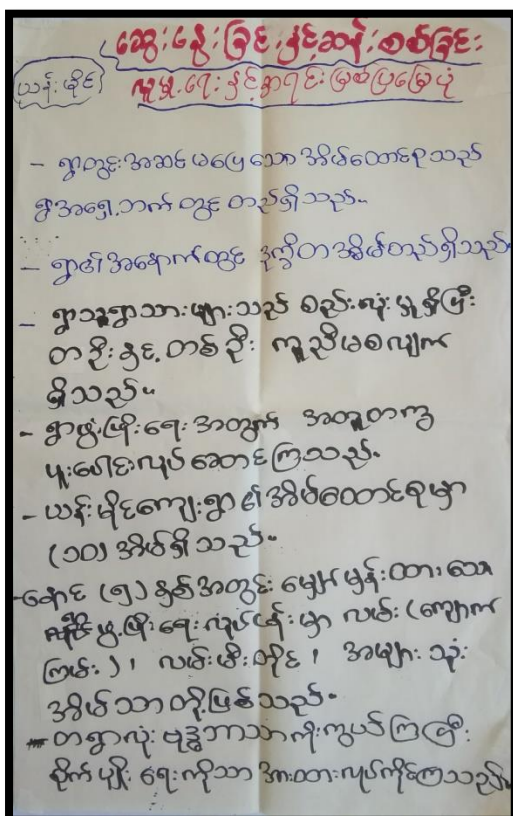 ဆွေးနွေးခြင်းနှင့်ဆန်းစစ်ခြင်း
ယန်းမိုင် လူမှုရေးနှင့်အရင်းမြစ်ပြမြေပုံ
- ရွာတွင်းအဆင်မပြေသောအိမ်ထောင်စုသည်
ရွာအရှေ့ဘက်တွင်တည်ရှိသည်။
- ရွာ၏အနောက်တွင် ဒုက္ခိတအိမ်တည်ရှိသည်။
- ရွာသူရွာသားများသည် စည်းလုံးမှုရှိပြီး
တဦးနှင့်တစ်ဦး ကူညီမစလျက်
ရှိသည်။
- ရွာဖွံ့ဖြိုးရေးအတွက် အတူတကွ
ပူးပေါင်းလုပ်ဆောင်ကြသည်။
- ယန်းမိုင်ကျေးရွာ၏အိမ်ထောင်စုမှာ
(၁၀) အိမ်ရှိသည်။
- နောင် (၅) နှစ်အတွင်း မျှော်မှန်းထားသော
ဖွံ့ဖြိုးရေးလုပ်ငန်းမှာ လမ်း (ကျောက်
ကြမ်း)၊ လမ်းမီးတိုင်၊ အများသုံး
အိမ်သာတို့ဖြစ်သည်။
- တရွာလုံးဗုဒ္ဓဘာသာကိုးကွယ်ကြပြီး
စိုက်ပျိုးရေးကိုသာ အားထားလုပ်ကိုင်ကြသည်။